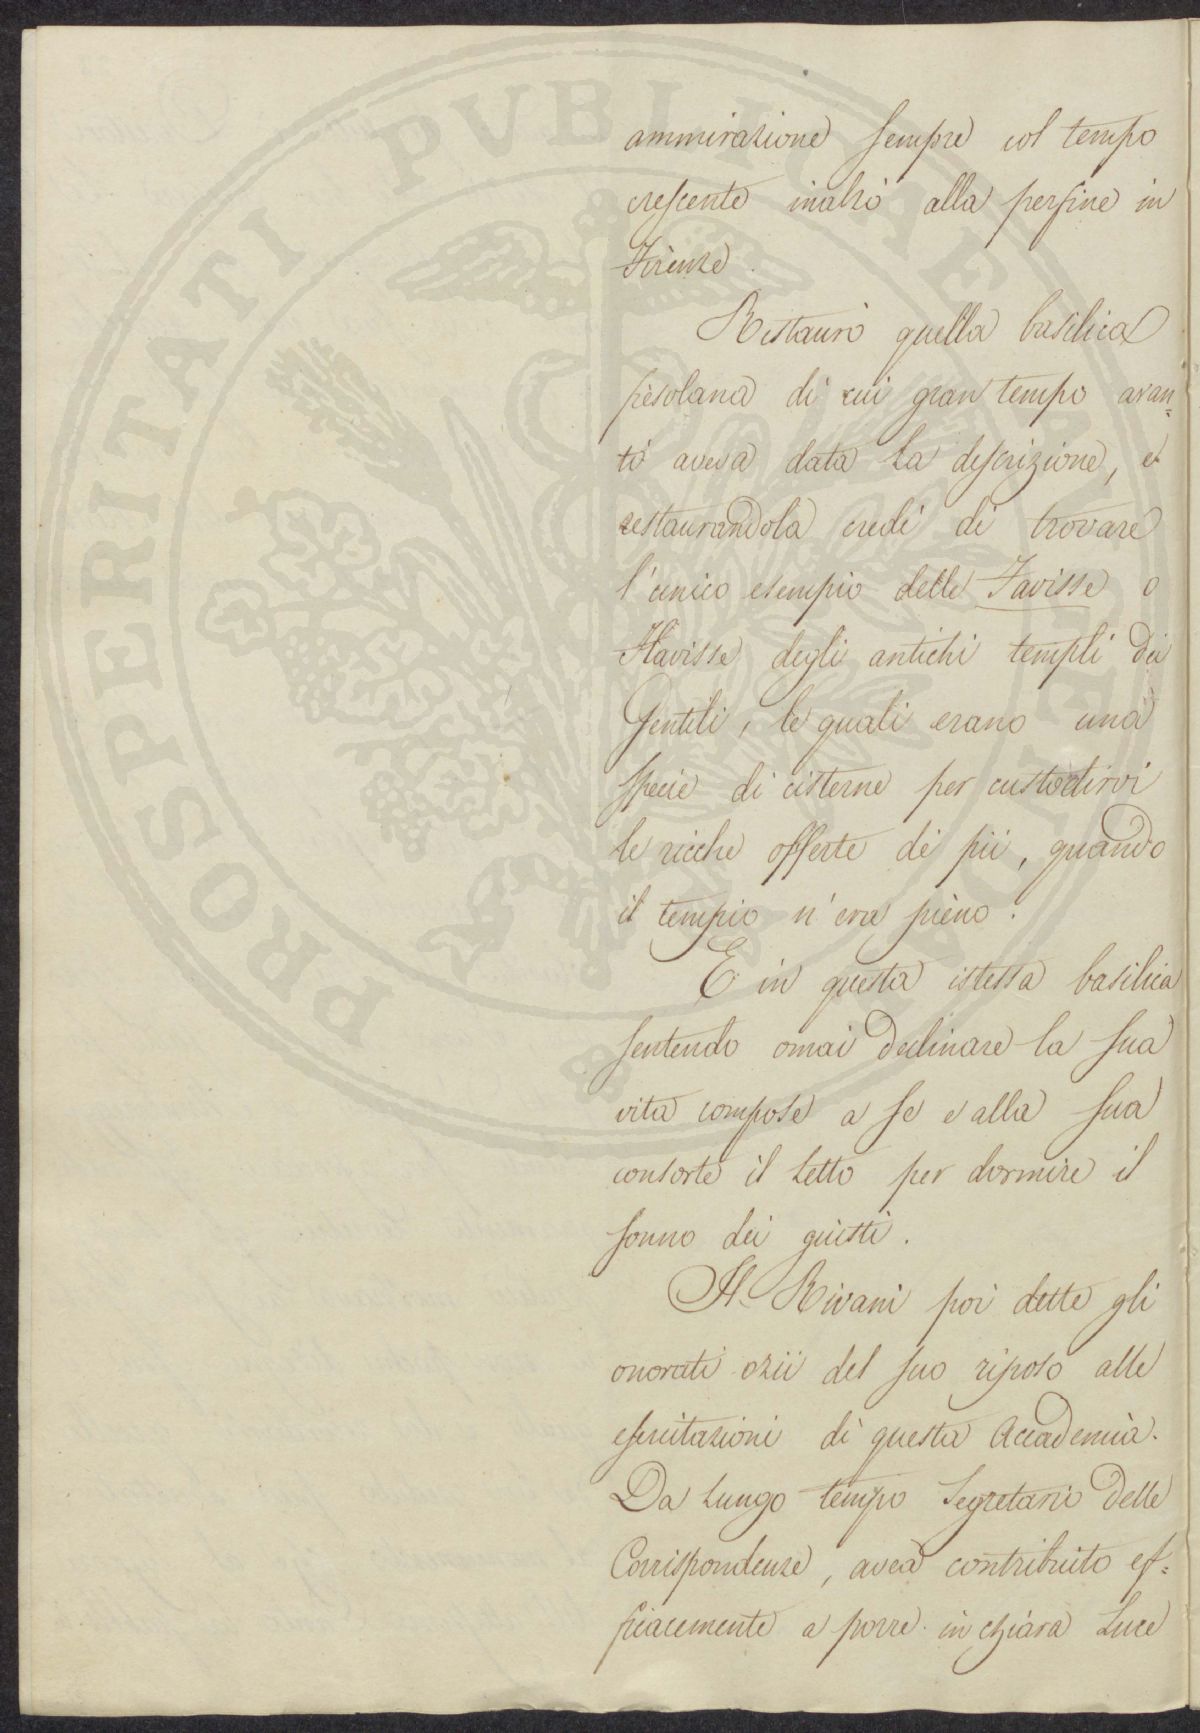 PROSPERITATI PVBLICAE
ammirazione sempre col tempo
crescente inalzò alla perfine in
Firenze.
Ristaurò quella basilica
fiesolana di cui gran tempo avan=
ti aveva data la descrizione, e
restaurandola credè di trovare
l'unico esempio delle Favisse o
Flavisse degli antichi templi dei
Gentili, le quali erano una
specie di cisterne per custodirvi
le ricche offerte de' pii, quando
il tempio n'era pieno.
E in questa istessa basilica
sentendo omai declinare la sua
vita compose a se e alla sua
consorte il letto per dormire il
sonno dei giusti.
Il Rivani poi dette gli
onorati ozii del suo riposo alle
esercitazioni di questa Accademia.
Da lungo tempo Segretario delle
Corrispondenze, avea contribuito ef=
ficacemente a porre in chiara luce